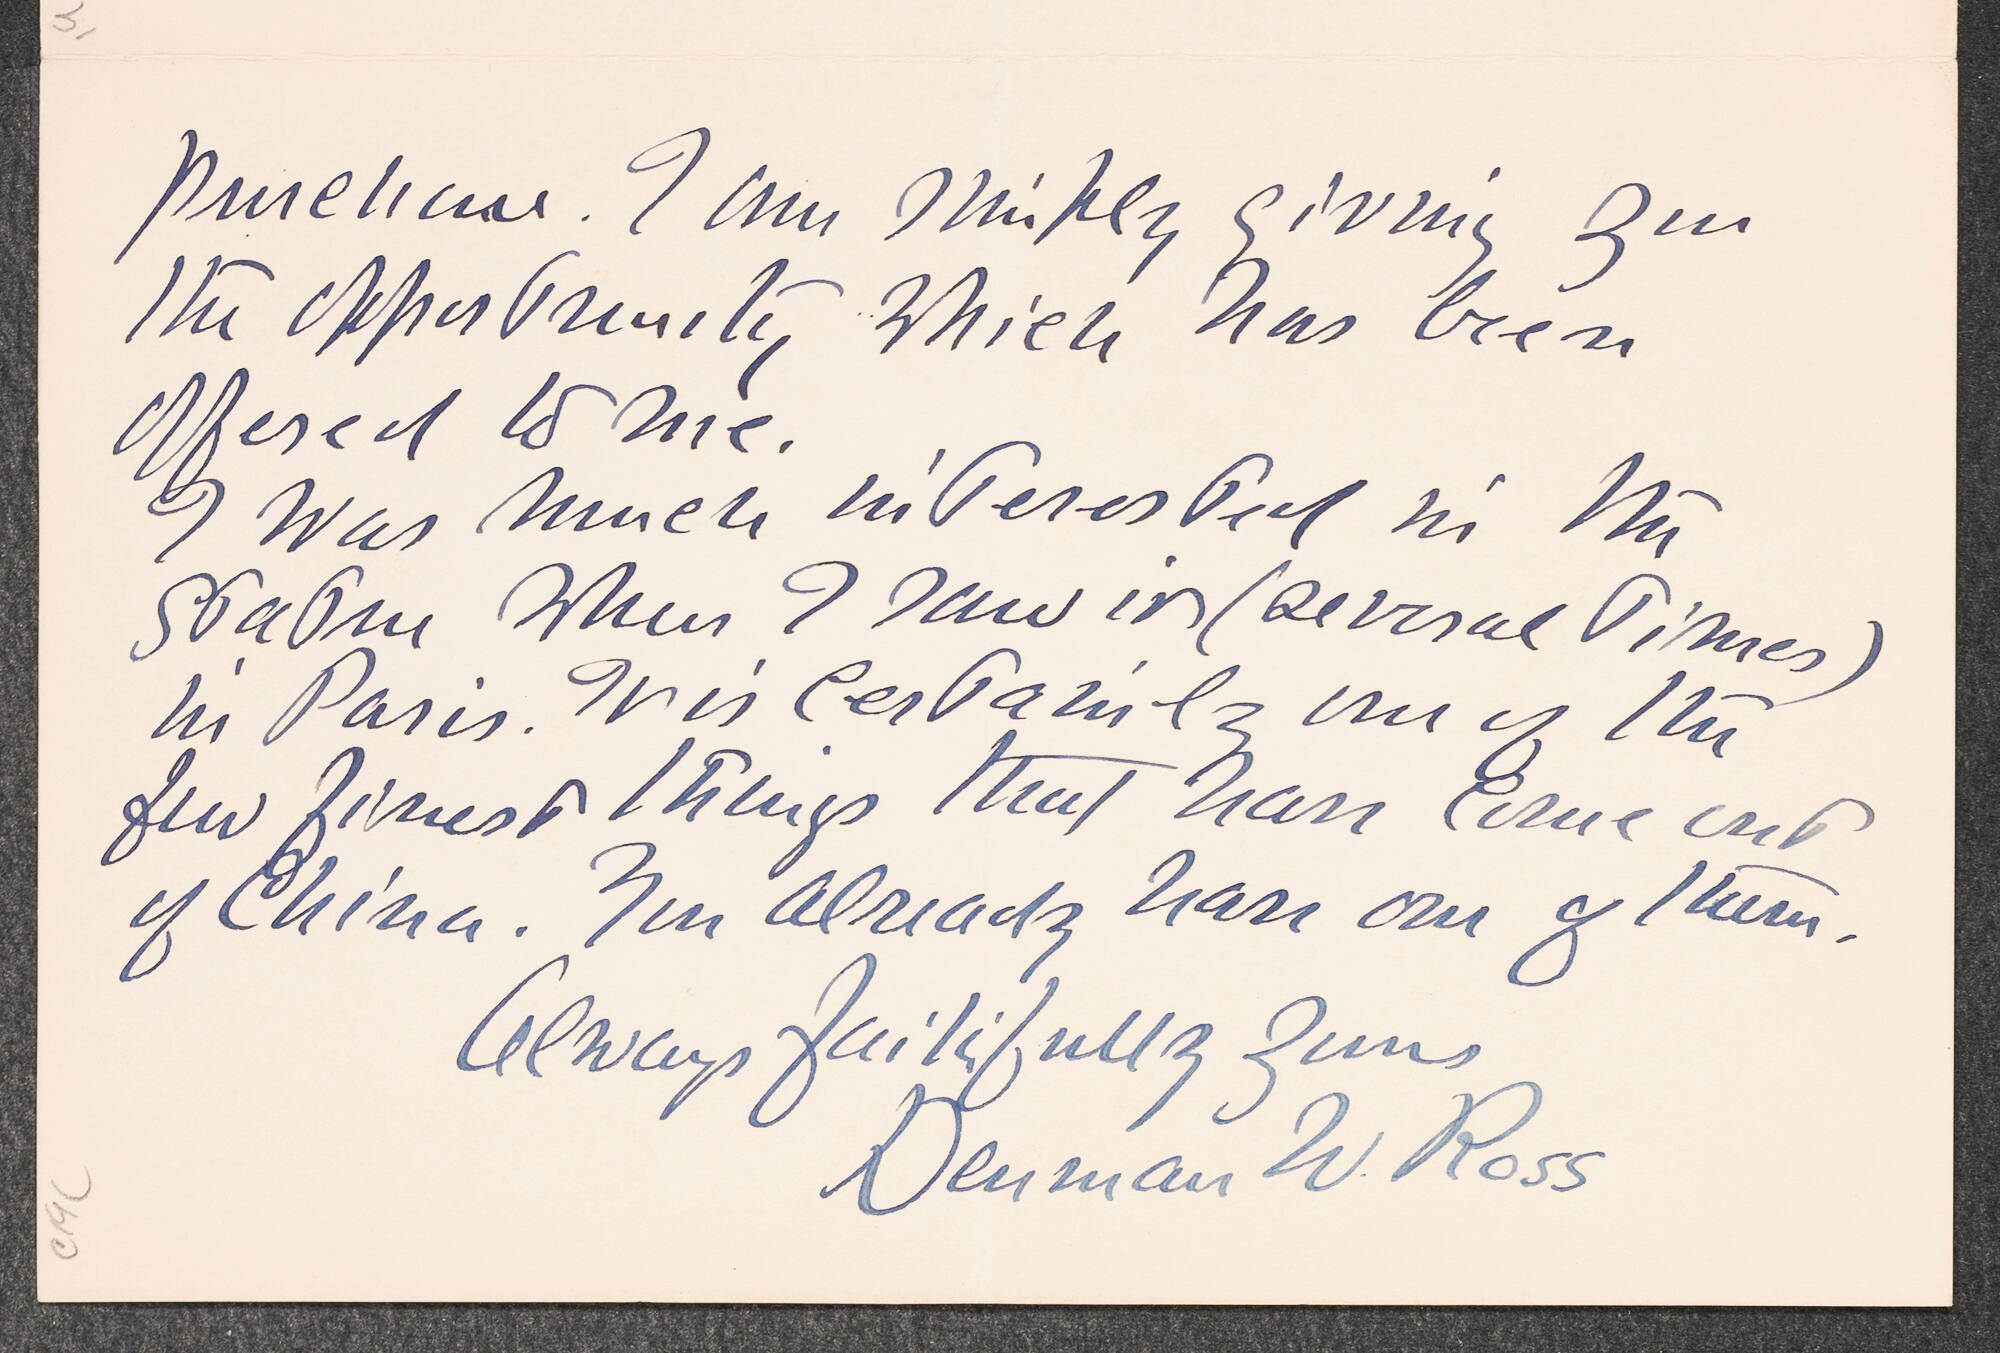 purchase. I am simply giving you
the opportunity which has been
offered to me.
I was much interested in the
statue when I saw it (several times)
in Paris. It is certainly one of the
few finest things that have come out
of China. You already have one of them.
Always faithfully yours
Denman W. Ross